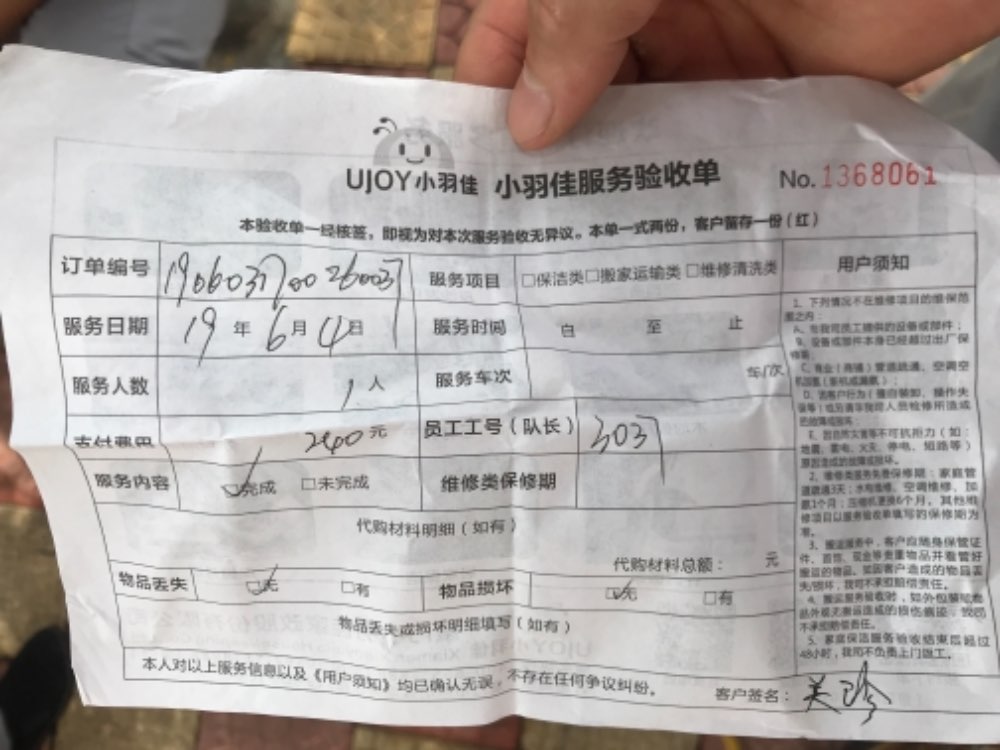 UJOY小羽佳 小羽佳服务验收单 No.1368061
本验收单一经核签，即视为对本次服务验收无异议。本单一式两份，客户留存一份（红）
订单编号 服务项目 □保洁类□搬家运输类□维修清洗类 用户须知
服务日期 19年6月4日 服务时间 自 至 止
服务人数 1人 服务车次 车/次
支付费用 2400元 员工工号（队长） 3037
服务内容 ☑完成 □未完成 维修类保修期
代购材料明细（如有）
代购材料总额： 元
物品丢失 ☑无 □有 物品损坏 ☑无 □有
物品丢失或损坏明细填写（如有）
本人对以上服务信息以及《用户须知》均已确认无误，不存在任何争议纠纷。 客户签名：
1、下列情况不在维修项目的维保范
围之内：
A、非我司员工提供的设备或部件；
B、设备或部件本身已经超过出厂保
修期；
E、因自然灾害等不可抗拒力（如：
地震、雷电、火灾、停电、短路等）
原因造成的故障或损坏。
2、维修类服务免费保修期：家庭管
道疏通3天；水电维修、空调维修、加
氨1个月；压缩机更换6个月，其他维
修项目以服务验收单填写的保修期为
准。
3、搬运服务中，客户应随身保管证
件、首饰、现金等贵重物品并看管好
搬运的物品，如因客户造成的物品丢
失/损坏，我司不承担赔偿责任。
不承担赔偿责任。
5、家庭保洁服务验收结束后超过
48小时，我司不负责上门返工。